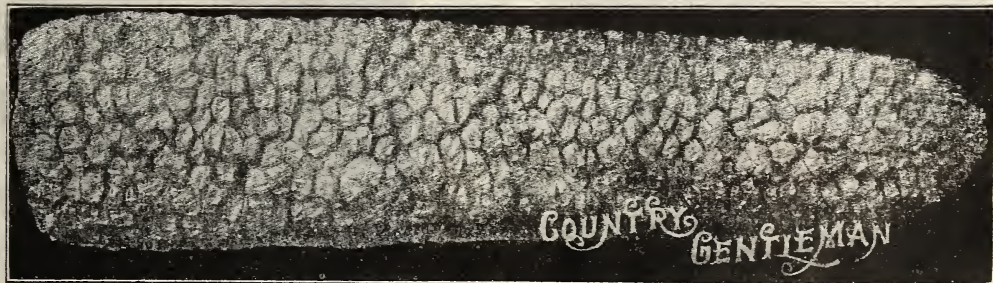 COUNTRY
GENTLEMAN